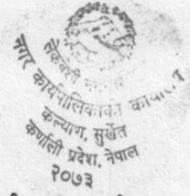 नगर कार्यपालिकाको
कल्याण, सुर्खेत
कर्णाली प्रदेश, नेपाल
२०७३